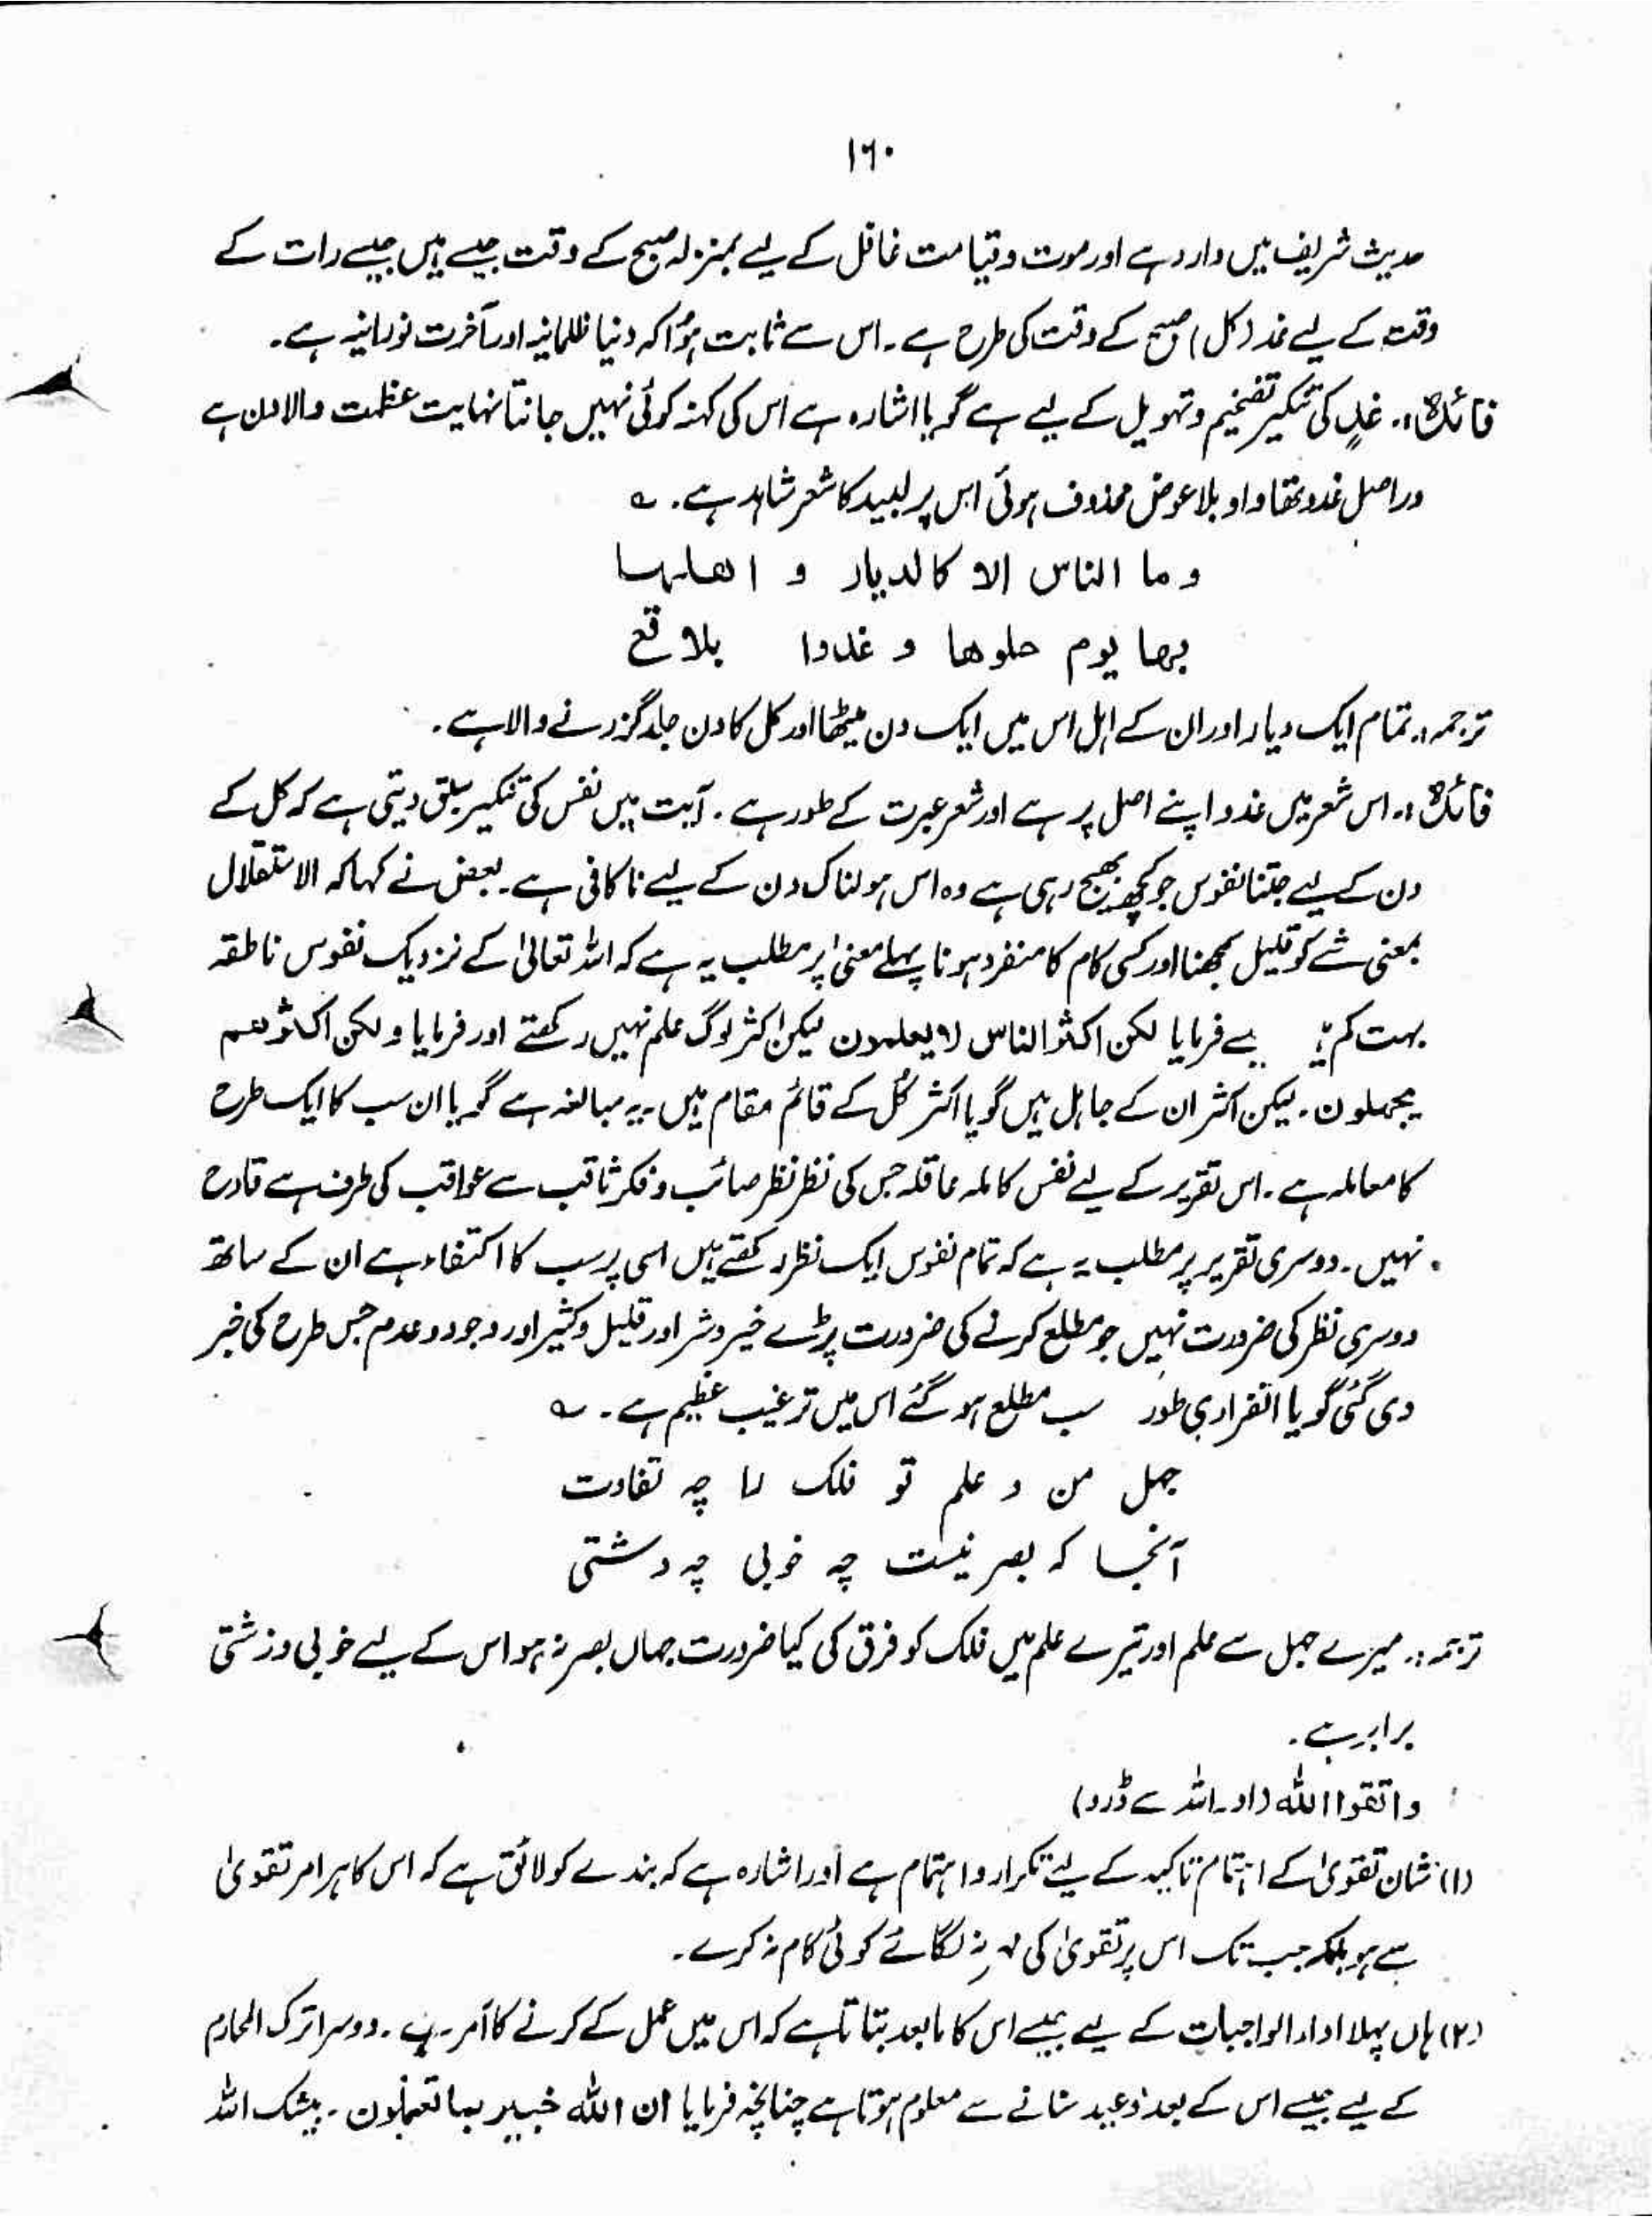 ۱۶۰
حدیث شریف میں وارد ہے اور موت و قیامت غافل کے لیے بمنزلہ صبح کے وقت جیسے ہیں جیسے رات کے
وقت کے لیے غد (کل) صبح کے وقت کی طرح ہے۔ اس سے ثابت ہؤا کہ دنیا ظلمانیہ اور آخرت نورانیہ ہے۔
فائدہ:۔ غدٍ کی تنکیر تفخیم و تہویل کے لیے ہے گویا اشارہ ہے اس کی کنہ کوئی نہیں جانتا نہایت عظمت والا دن ہے
دراصل غدو تھا واو بلا عوض محذوف ہوئی اس پر لبید کا شعر شاہد ہے۔ ؎
و ما الناس الا کالدیار و اھلہا
بھا یوم حلوھا و غدوا بلاقع
ترجمہ:۔ تمام ایک دیار اور ان کے اہل اس میں ایک دن میٹھا اور کل کا دن جلد گزرنے والا ہے۔
فائدہ:۔ اس شعر میں غدو اپنے اصل پر ہے اور شعر عبرت کے طور ہے۔ آیت میں نفس کی تنکیر سبق دیتی ہے کہ کل کے
دن کے لیے جتنا نفوس جو کچھ بھیج رہی ہے وہ اس ہولناک دن کے لیے ناکافی ہے۔ بعض نے کہا کہ الاستقلال
بمعنی شے کو قلیل سمجھنا اور کسی کام کا منفرد ہونا پہلے معنیٰ پر مطلب یہ ہے کہ اللہ تعالیٰ کے نزدیک نفوس ناطقہ
بہت کم فرمایا لکن اکثر الناس لا یعلمون لیکن اکثر لوگ علم نہیں رکھتے اور فرمایا ولکن اکثرھم
یجھلون۔ لیکن اکثر ان کے جاہل ہیں گویا اکثر کُل کے قائم مقام ہیں۔ یہ مبالغہ ہے گویا ان سب کا ایک طرح
کا معاملہ ہے۔ اس تقریر کے لیے نفس کاملہ عاقلہ جس کی نظر نظر صائب و فکر ثاقب سے عواقب کی طرف ہے قادح
نہیں۔ دوسری تقریر پر مطلب یہ ہے کہ تمام نفوس ایک نظر رکھتے ہیں اسی پر سب کا اکتفاء ہے ان کے ساتھ
دوسری نظر کی ضرورت نہیں جو مطلع کرنے کی ضرورت پڑے خیر و شر اور قلیل و کثیر اور وجود و عدم جس طرح کی خبر
دی گئی گویا انفرادی طور سب مطلع ہو گئے اس میں ترغیب عظیم ہے۔ ؎
جہل من و علم تو فلک را چہ تفاوت
آنجا کہ بصر نیست چہ خوبی چہ دشتی
ترجمہ:۔ میرے جہل سے علم اور تیرے علم میں فلک کو فرق کی کیا ضرورت جہاں بصر نہ ہو اس کے لیے خوبی و زشتی
برابر ہے۔
واتقوا اللہ (اور اللہ سے ڈرو)
(۱) شان تقویٰ کے اہتمام تاکید کے لیے تکرار و اہتمام ہے اور اشارہ ہے کہ بندے کو لائق ہے کہ اس کا ہر امر تقویٰ
سے ہو بلکہ جب تک اس پر تقویٰ کی نہ لگائے کوئی کام نہ کرے۔
(۲) ہاں پہلا اداء الواجبات کے لیے جیسے اس کا مابعد بتاتا ہے کہ اس میں عمل کے کرنے کا امر ہے۔ دوسرا ترک المحارم
کے لیے جیسے اس کے بعد وعید سنانے سے معلوم ہوتا ہے چنانچہ فرمایا ان اللہ خبیر بما تعملون۔ بیشک اللہ